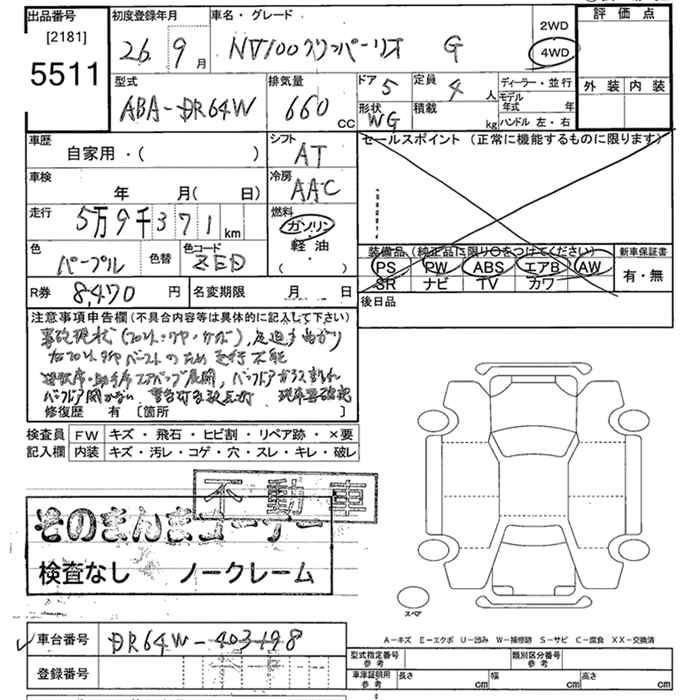 出品番号
[2181]
5511
初度登録年月
26 9 月
車名・グレード
NV100クリッパーリオ G
2WD
4WD
評価点
外装 内装
型式
ABA-DR64W
排気量
660 cc
ドア 5
形状 WG
定員 4 人
積載 kg
ディーラー・並行
モデル年式 年
ハンドル 左・右
車歴
自家用・( )
シフト
AT
セールスポイント (正常に機能するものに限ります)
車検
年 月( 日)
冷房
AAC
走行
5万9千371 km
燃料
ガソリン
軽油
( )
色
パープル
色替
色コード
ZED
装備品 (純正品に限り○をつけてください)
PS PW ABS エアB AW
SR ナビ TV カワ
新車保証書
有・無
R券 8,470 円
名変期限 月 日
後日品
注意事項申告欄(不具合内容等は具体的に記入して下さい)
事故現状
右フロントタイヤバーストのため走行不能
運転席・助手席エアバッグ展開、バックドアガラス割れ
バックドア開かない 警告灯多数点灯 現車要確認
修復歴 有 [箇所 ]
検査員記入欄
FW キズ・飛石・ヒビ割・リペア跡・×要
内装 キズ・汚レ・コゲ・穴・スレ・キレ・破レ
不動車
そのまんまコーナー
検査なし ノークレーム
スペア
A-キズ E-エクボ U-凹み W-補修跡 S-サビ C-腐食 XX-交換済
車台番号 DR64W-403198
登録番号
型式指定番号 参考
類別区分番号 参考
車庫証明用 参考
長さ cm
幅 cm
高さ cm